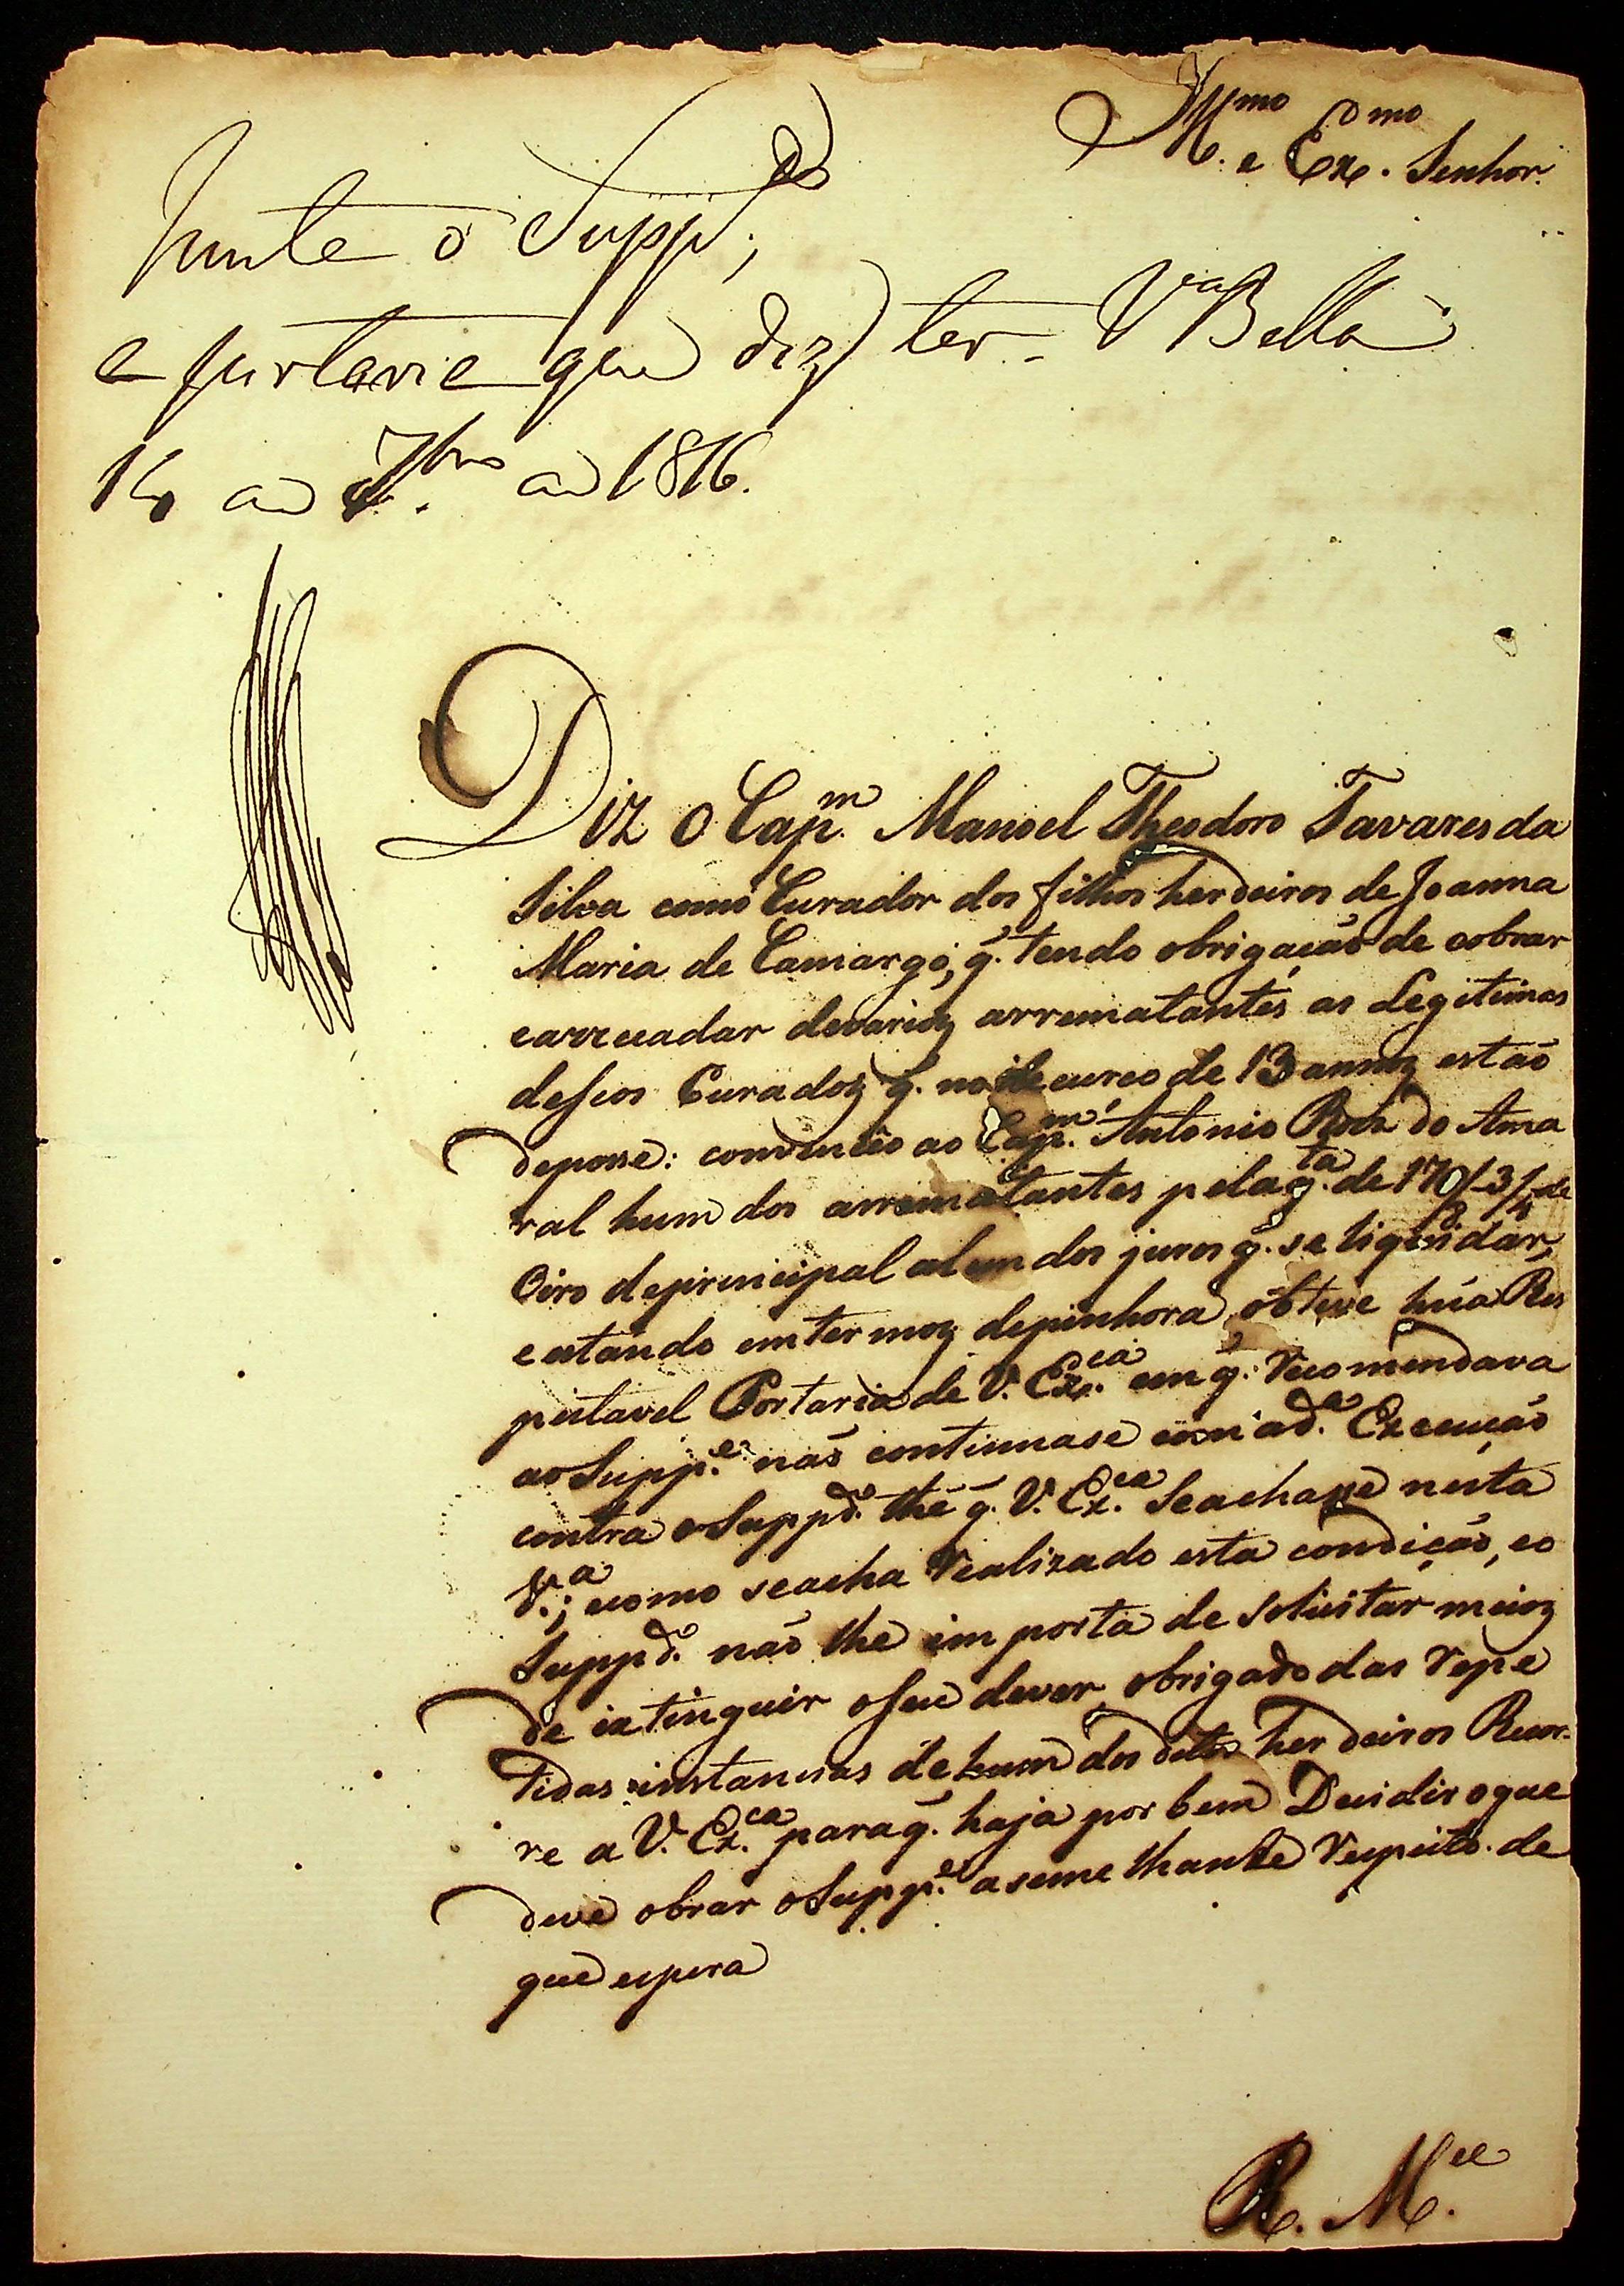 Ill.mo e Ex.mo Senhor.
Junte o Supp.do,
a portaria que diz ter. V.a Bella
14 de 7.bro de 1816.
Diz o Cap.m Manoel Theodoro Tavares da
Silva como Curador dos filhos herdeiros de Joanna
Maria de Camargo, q. tendo obrigação de cobrar
earrecadar devarios arrematantes as Legitimas
desseos Curados q. no decurço de 13 annos estão
deposse: convencêo ao Cap.m Antonio Roiz do Ama
ral hum dos arrematantes pela q.ta de 170/8 3/4 de
Oiro deprincipal alem dos juros q. se liquidar,
e estando emtermos depenhora, obteve hũa Res
peitavel Portaria de V. Ex.ca em q. recomendava
ao Supp.e não continuase com ad.a Execução
contra oSuppd.o thé q. V. Ex.ca Seachasse nesta
V.a; ecomo seacha realizado esta condição, eo
Suppd.o não lhe importa de solicitar meios
de extinguir oSeu dever, obrigado das repe
tidas instancias de hum dos ditos herdeiros Recor-
re a V. Ex.ca paraq. haja por bem Decidir oque
deve obrar oSupp.e asemelhante respeito. de
que espera
R. M.ce